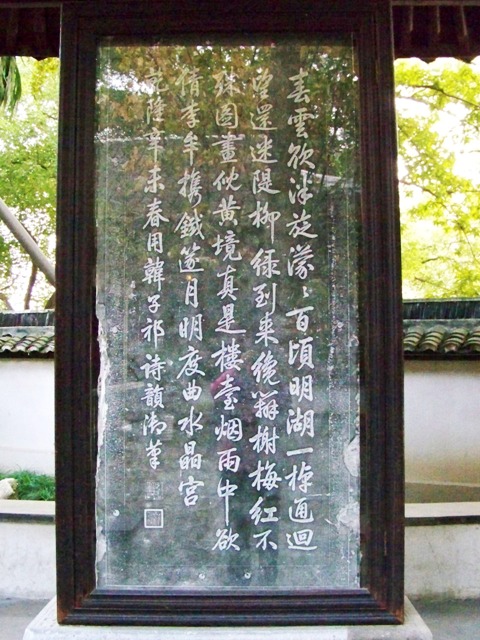 春雲欲泮旋濛〻百頃明湖一棹通迴
望還迷隄柳綠到來纔辨榭梅紅不
殊圖畫倪黃境真是樓臺烟雨中欲
倩李牟攜鐵篴月明度曲水晶宮
乾隆辛未春用韓子祁詩韻御筆